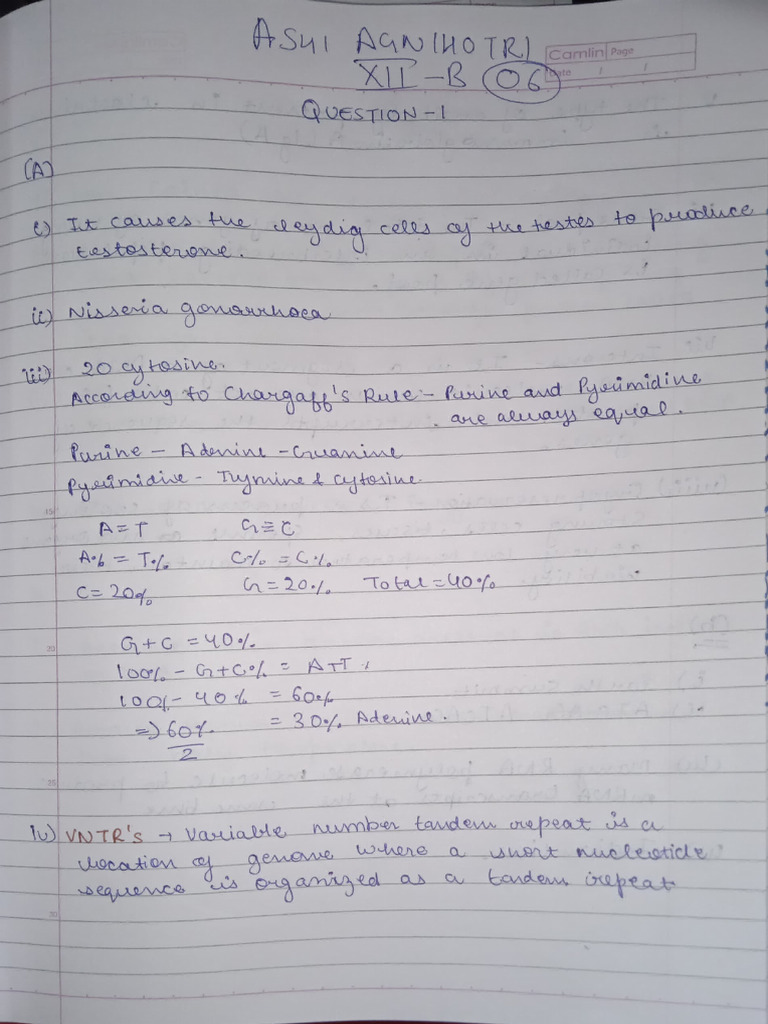 ASHI AGNIHOTRI
Camlin Page
Date / /
XII - B 06
QUESTION - 1
(A)
i) It causes the leydig cells of the testes to produce
testosterone.
ii) Nisseria gonorrhoea
iii) 20 cytosine.
According to Chargaff's Rule - Purine and Pyrimidine
are always equal.
Purine - Adenine - Guanine
Pyrimidine - Tymine & Cytosine
A = T G ≡ C
A% = T% C% = C%
C = 20% G = 20% Total = 40%
G + C = 40%
100% - G + C% = A + T
100% - 40% = 60%
=> 60%/2 = 30% Adenine.
iv) VNTR's → Variable number tandem repeat is a
location of genome where a short nucleotide
sequence is organized as a tandem repeat